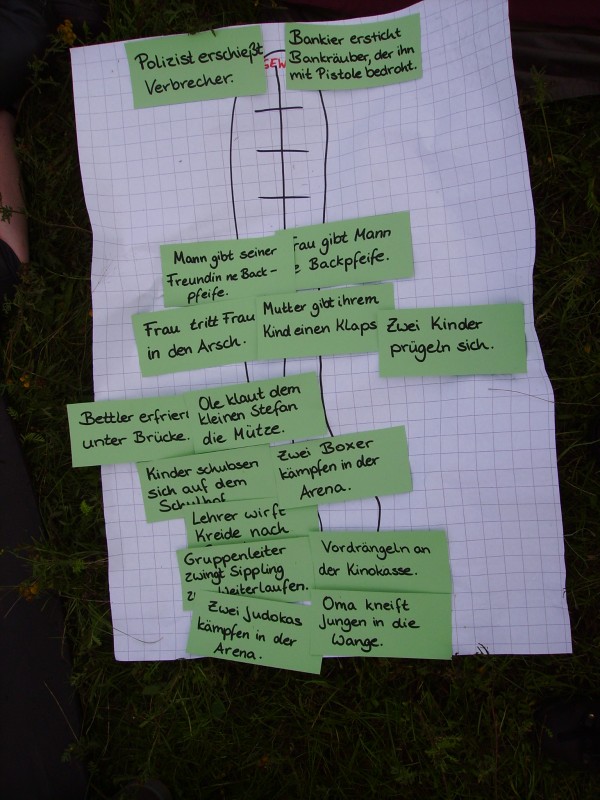 Polizist erschießt
Verbrecher.
GEW
Bankier ersticht
Bankräuber, der ihn
mit Pistole bedroht.
Mann gibt seiner
Freundin ne Back-
pfeife.
rau gibt Mann
e Backpfeife.
Frau tritt Frau
in den Arsch.
Mutter gibt ihrem
Kind einen Klaps
Zwei Kinder
prügeln sich.
Bettler erfriert
unter Brücke.
Ole klaut dem
kleinen Stefan
die Mütze.
Kinder schubsen
sich auf dem
Schulhof
Zwei Boxer
kämpfen in der
Arena.
Lehrer wirft
Kreide nach
Gruppenleiter
zwingt Sippling
zu Weiterlaufen.
Vordrängeln an
der Kinokasse.
Zwei Judokas
kämpfen in der
Arena.
Oma kneift
Jungen in die
Wange.